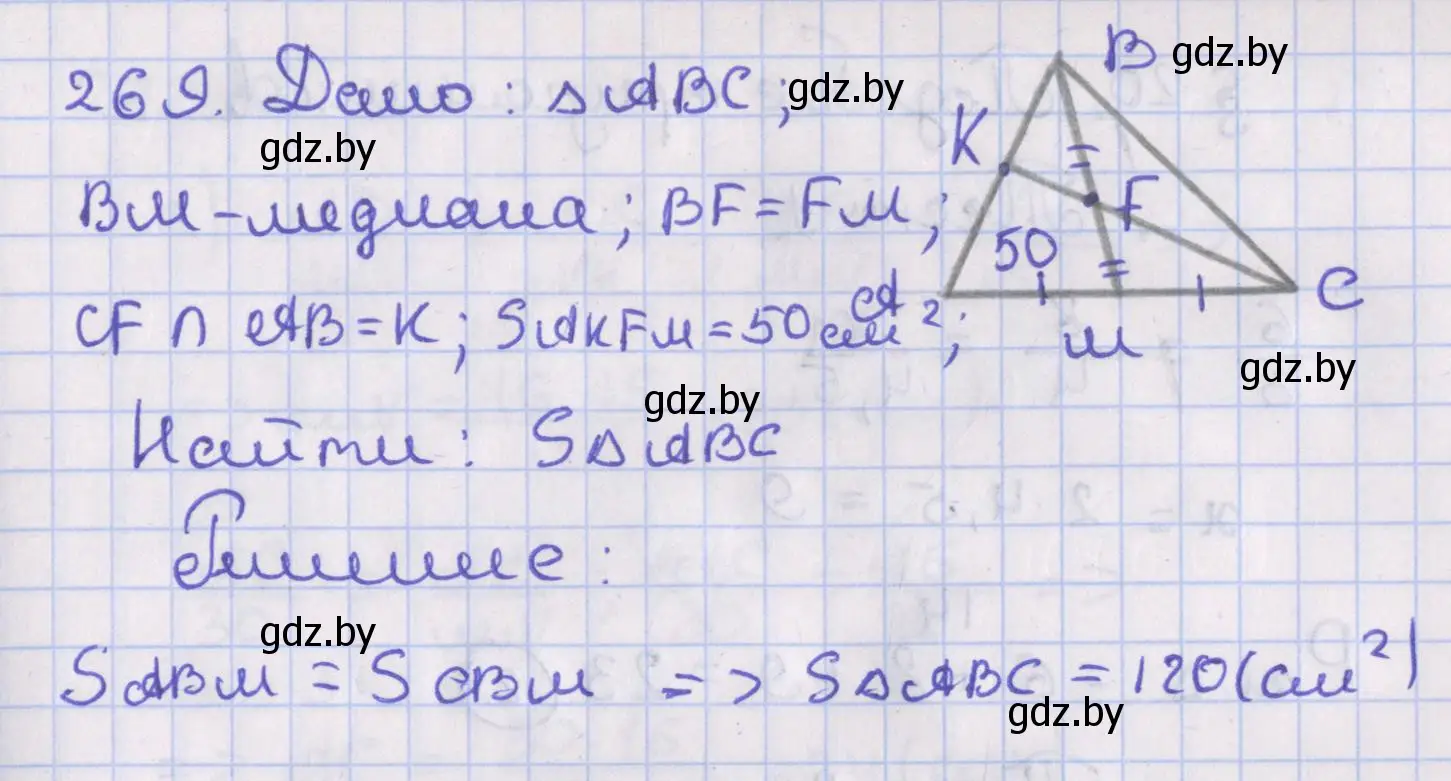 269. Дано: △ABC; gdz.by
gdz.by
BM - медиана; BF = FM;
CF ∩ AB = K; SAKFM = 50 см²;
gdz.by
Найти: S△ABC
Решение:
gdz.by
SABM = SCBM => S△ABC = 120 (см²)
gdz.by
B gdz.by
K
F
50
A
C
M
gdz.by